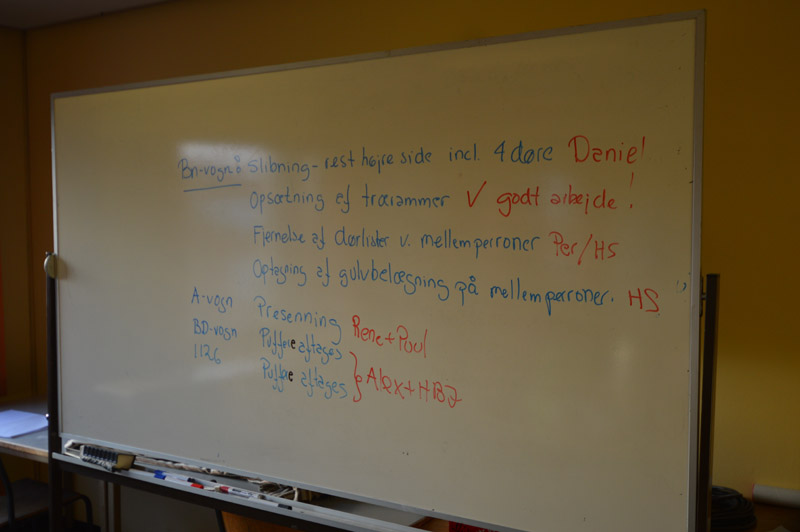 Bn-vogn: Slibning - rest højre side incl. 4 døre Daniel
Opsætning af trærammer V godt arbejde!
Fjernelse af dørlister v. mellemperroner Per/HS
Optagning af gulvbelægning på mellemperroner. HS
A-vogn Presenning Rene + Poul
BD-vogn Puffere aftages
1126 Puffere aftages } Alex + HBJ